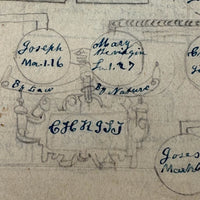 Joseph
Ma.1.16
By Law
Mary
the virgin
L.1.27
By Nature
CHRIST
Jose
Matth